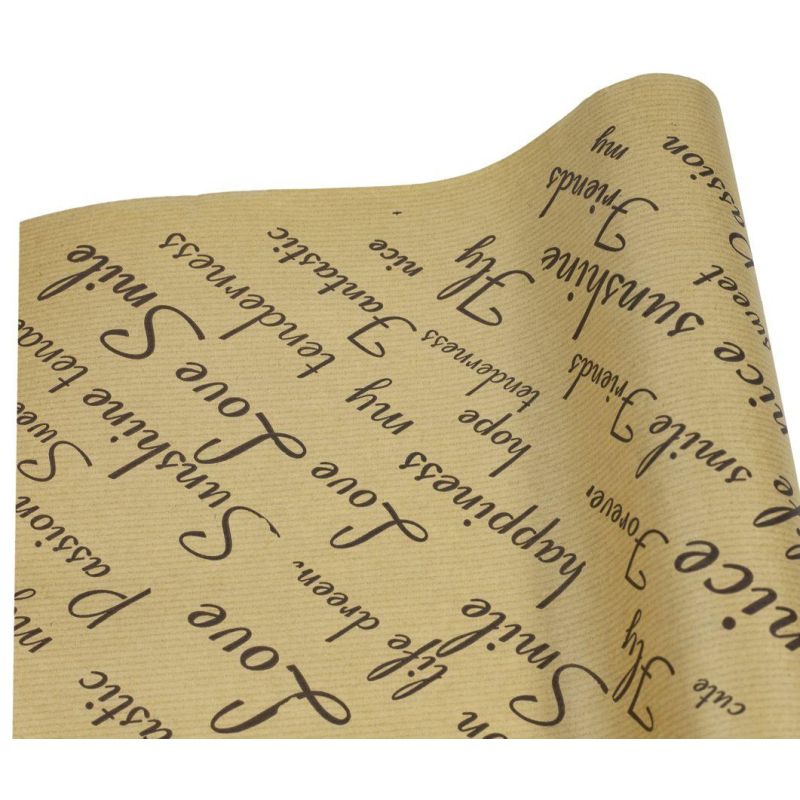 Smile
tenderness
Fantastic
nice
Fly
my
Friends
passion
sweet
nice sunshine
Sunshine tende
Love Love
my
tenderness
hope
Friends
smile
nice
Swee
Love
happiness
Forever
Passion
life dreem
Smile
Fly
cute
nice
my
Love
astic
on